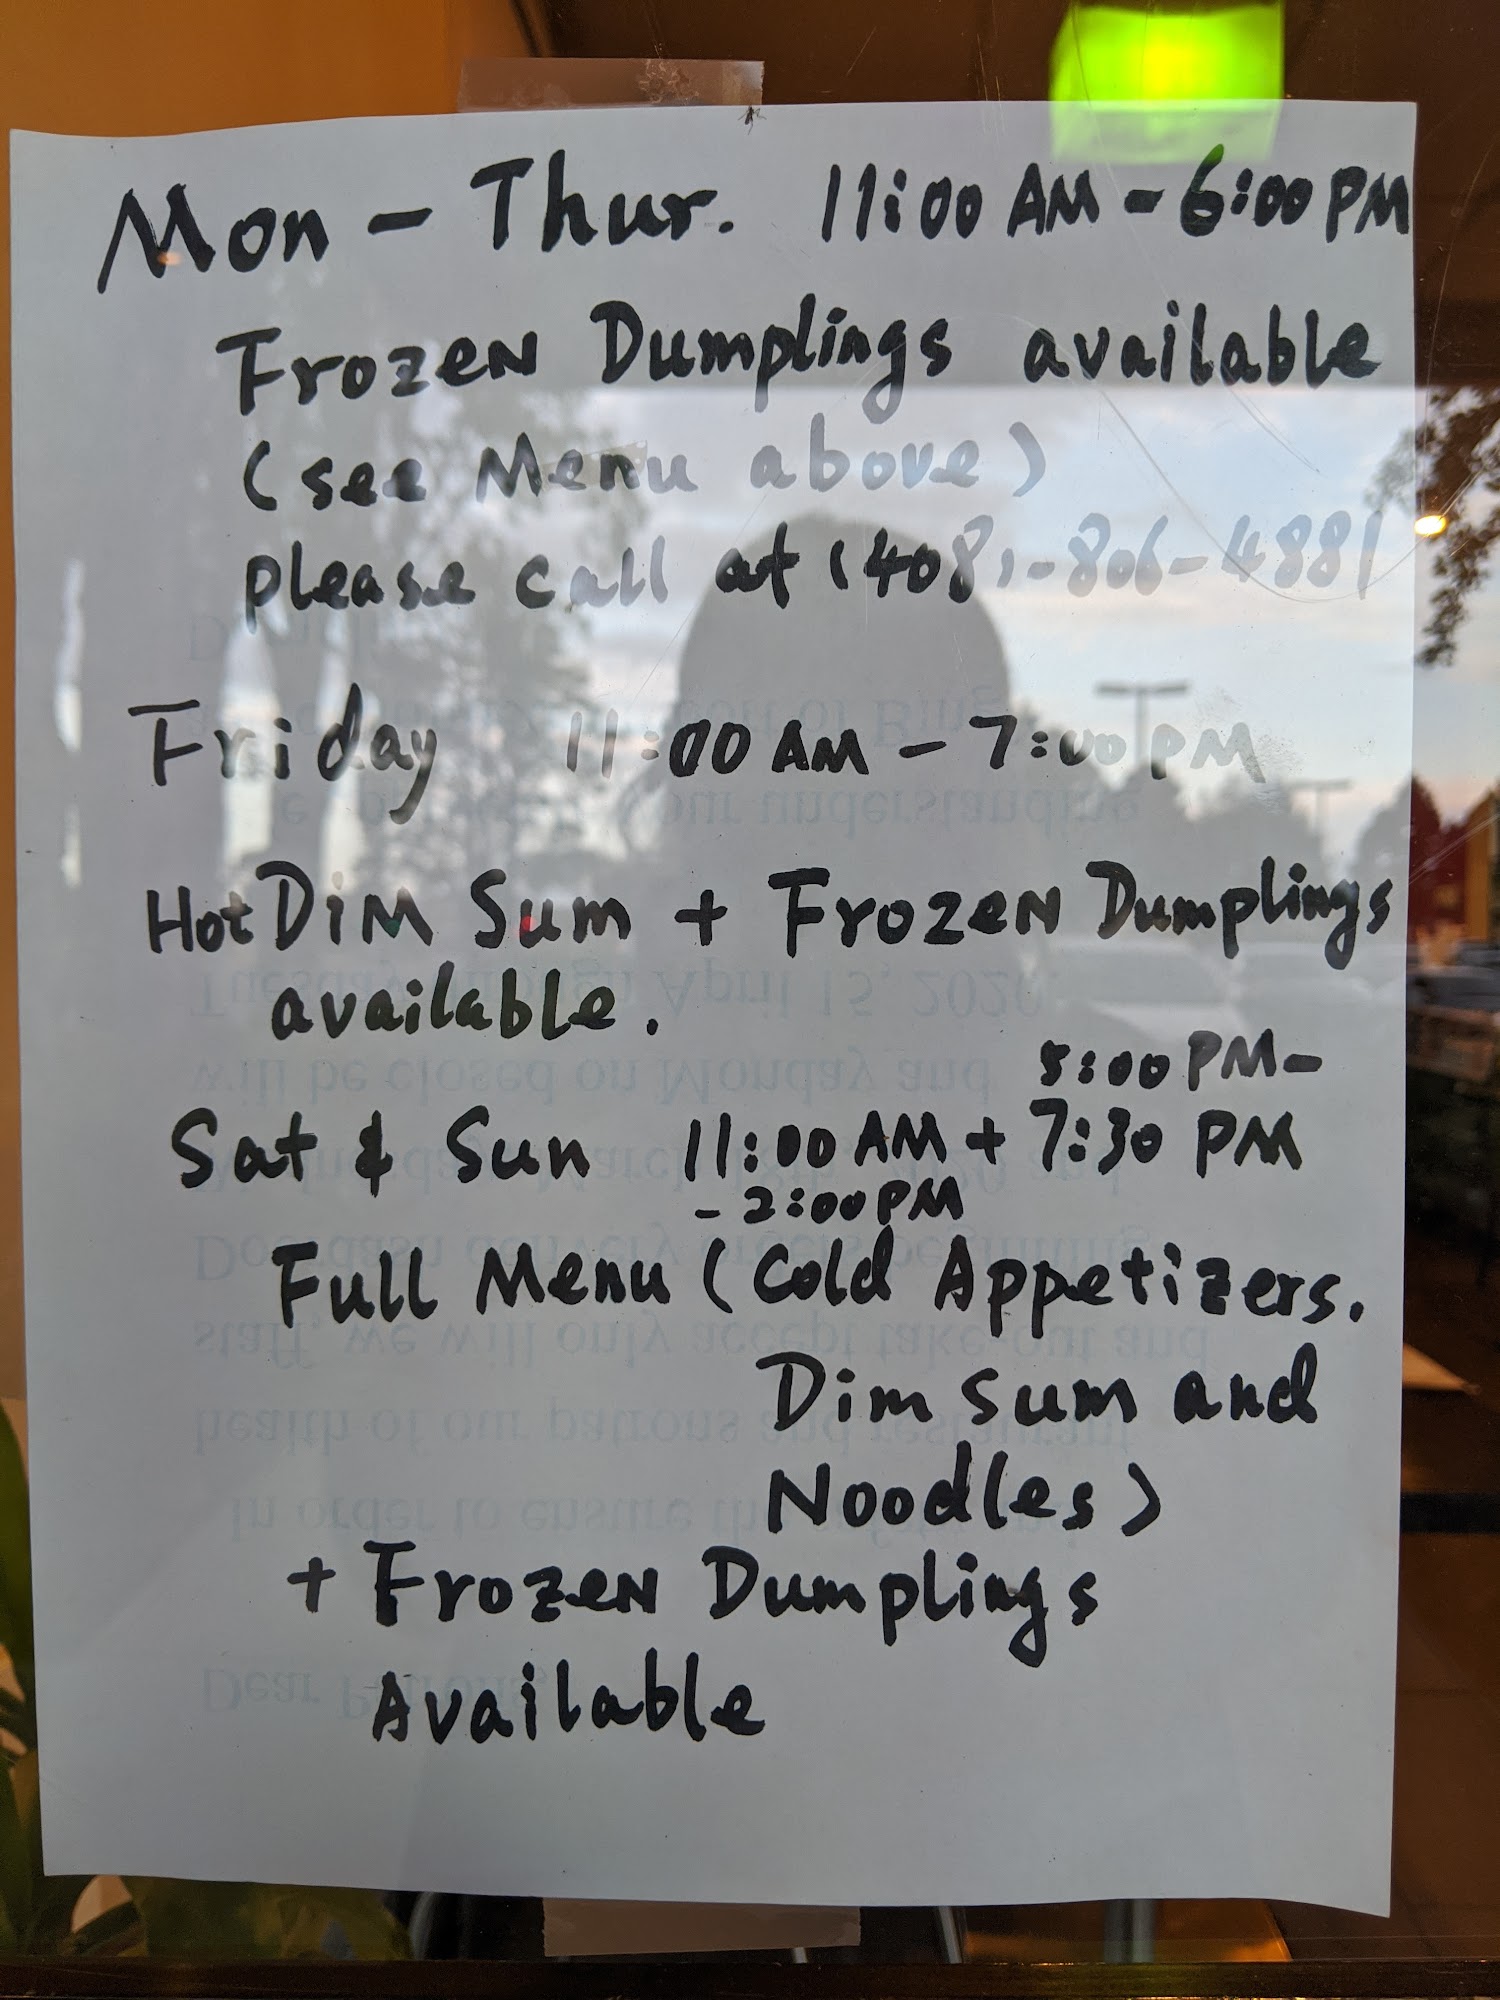 Mon - Thur. 11:00 AM - 6:00 PM
Frozen Dumplings available
(see Menu above)
please call at (408)-806-4881
Friday 11:00 AM - 7:00 PM
Hot Dim Sum + Frozen Dumplings
available.
5:00 PM-
Sat & Sun 11:00 AM + 7:30 PM
- 2:00 PM
Full Menu (Cold Appetizers.
Dim Sum and
Noodles)
+ Frozen Dumplings
Available